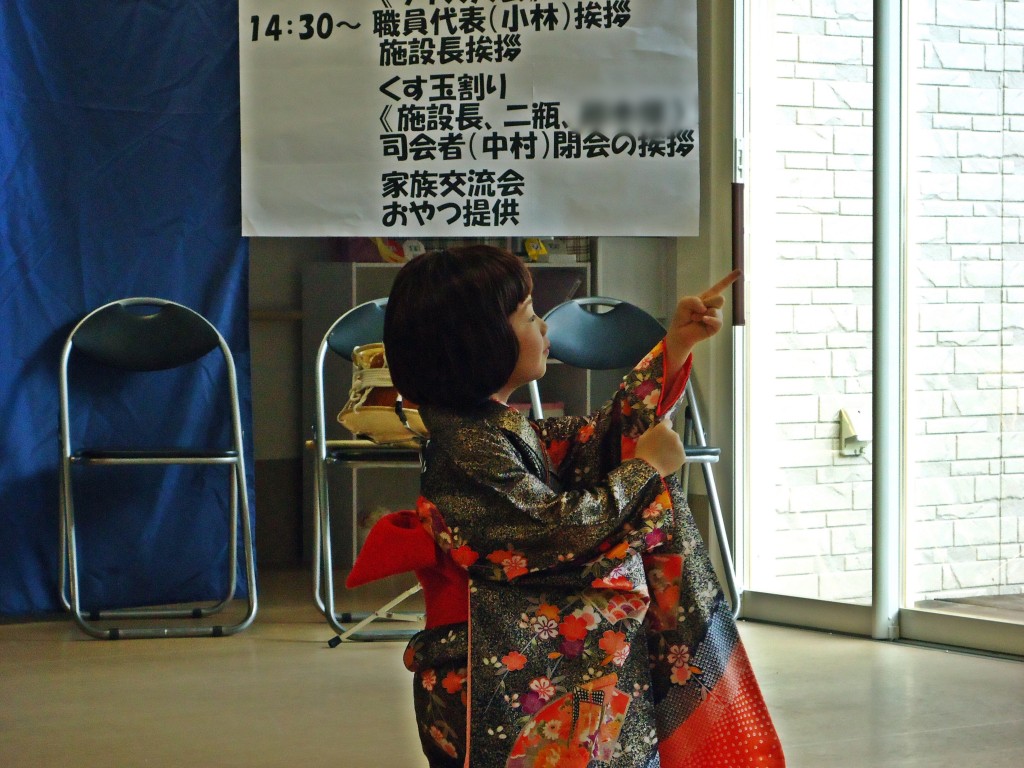 14:30～ 職員代表(小林)挨拶
施設長挨拶
くす玉割り
《施設長、二瓶、
司会者(中村)閉会の挨拶
家族交流会
おやつ提供